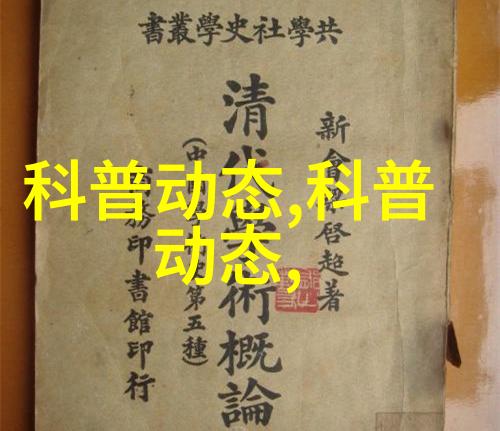 共學社史學叢書
新會梁啓超著
清代學術概論
(中國學術史第五種)
商務印書館印行
科普动态,科普
动态,